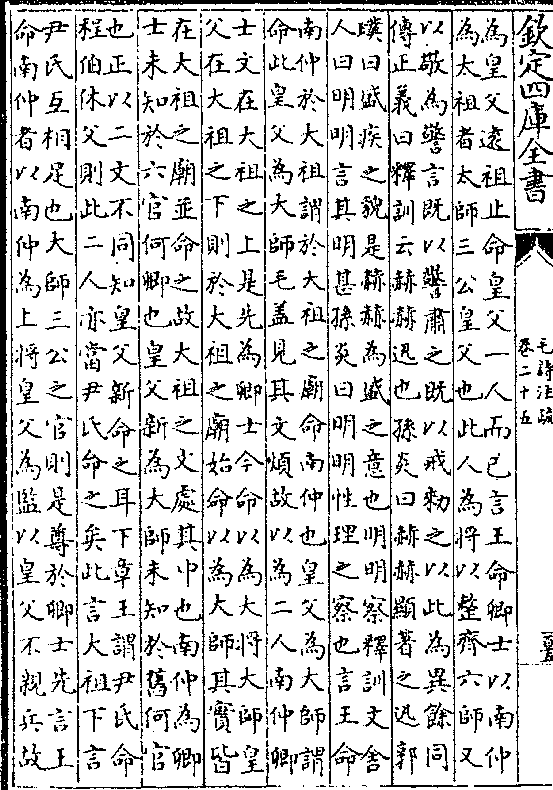 欽定四庫全書
毛詩注疏
卷二十五
為皇父遠祖止命皇父一人而已言王命卿士以南仲
為太祖者太師三公皇父也此人為將以整齊六師又
以敬為警言既以警肅之既以戒勑之以此為異餘同
傳正義曰釋訓云赫赫迅也孫炎曰赫赫顯著之迅郭
璞曰盛疾之貌是赫赫為盛之意也明明察釋訓文舍
人曰明明言其明甚孫炎曰明明性理之察也言王命
南仲於大祖謂於大祖之廟命南仲也皇父為大師謂
命此皇父為大師毛蓋見其文煩故以為二人南仲卿
士文在大祖之上是先為卿士今命以為大將大師皇
父在大祖之下則於大祖之廟始命以為大師其實皆
在大祖之廟並命之故大祖之文處其中也南仲為卿
士未知於六官何卿也皇父新為大師未知於舊何官
也正以二文不同知皇父新命之耳下章王謂尹氏命
程伯休父則此二人亦當尹氏命之矣此言大祖下言
尹氏互相足也大師三公之官則是尊於卿士先言王
命南仲者以南仲為上將皇父為監以皇父不親兵故